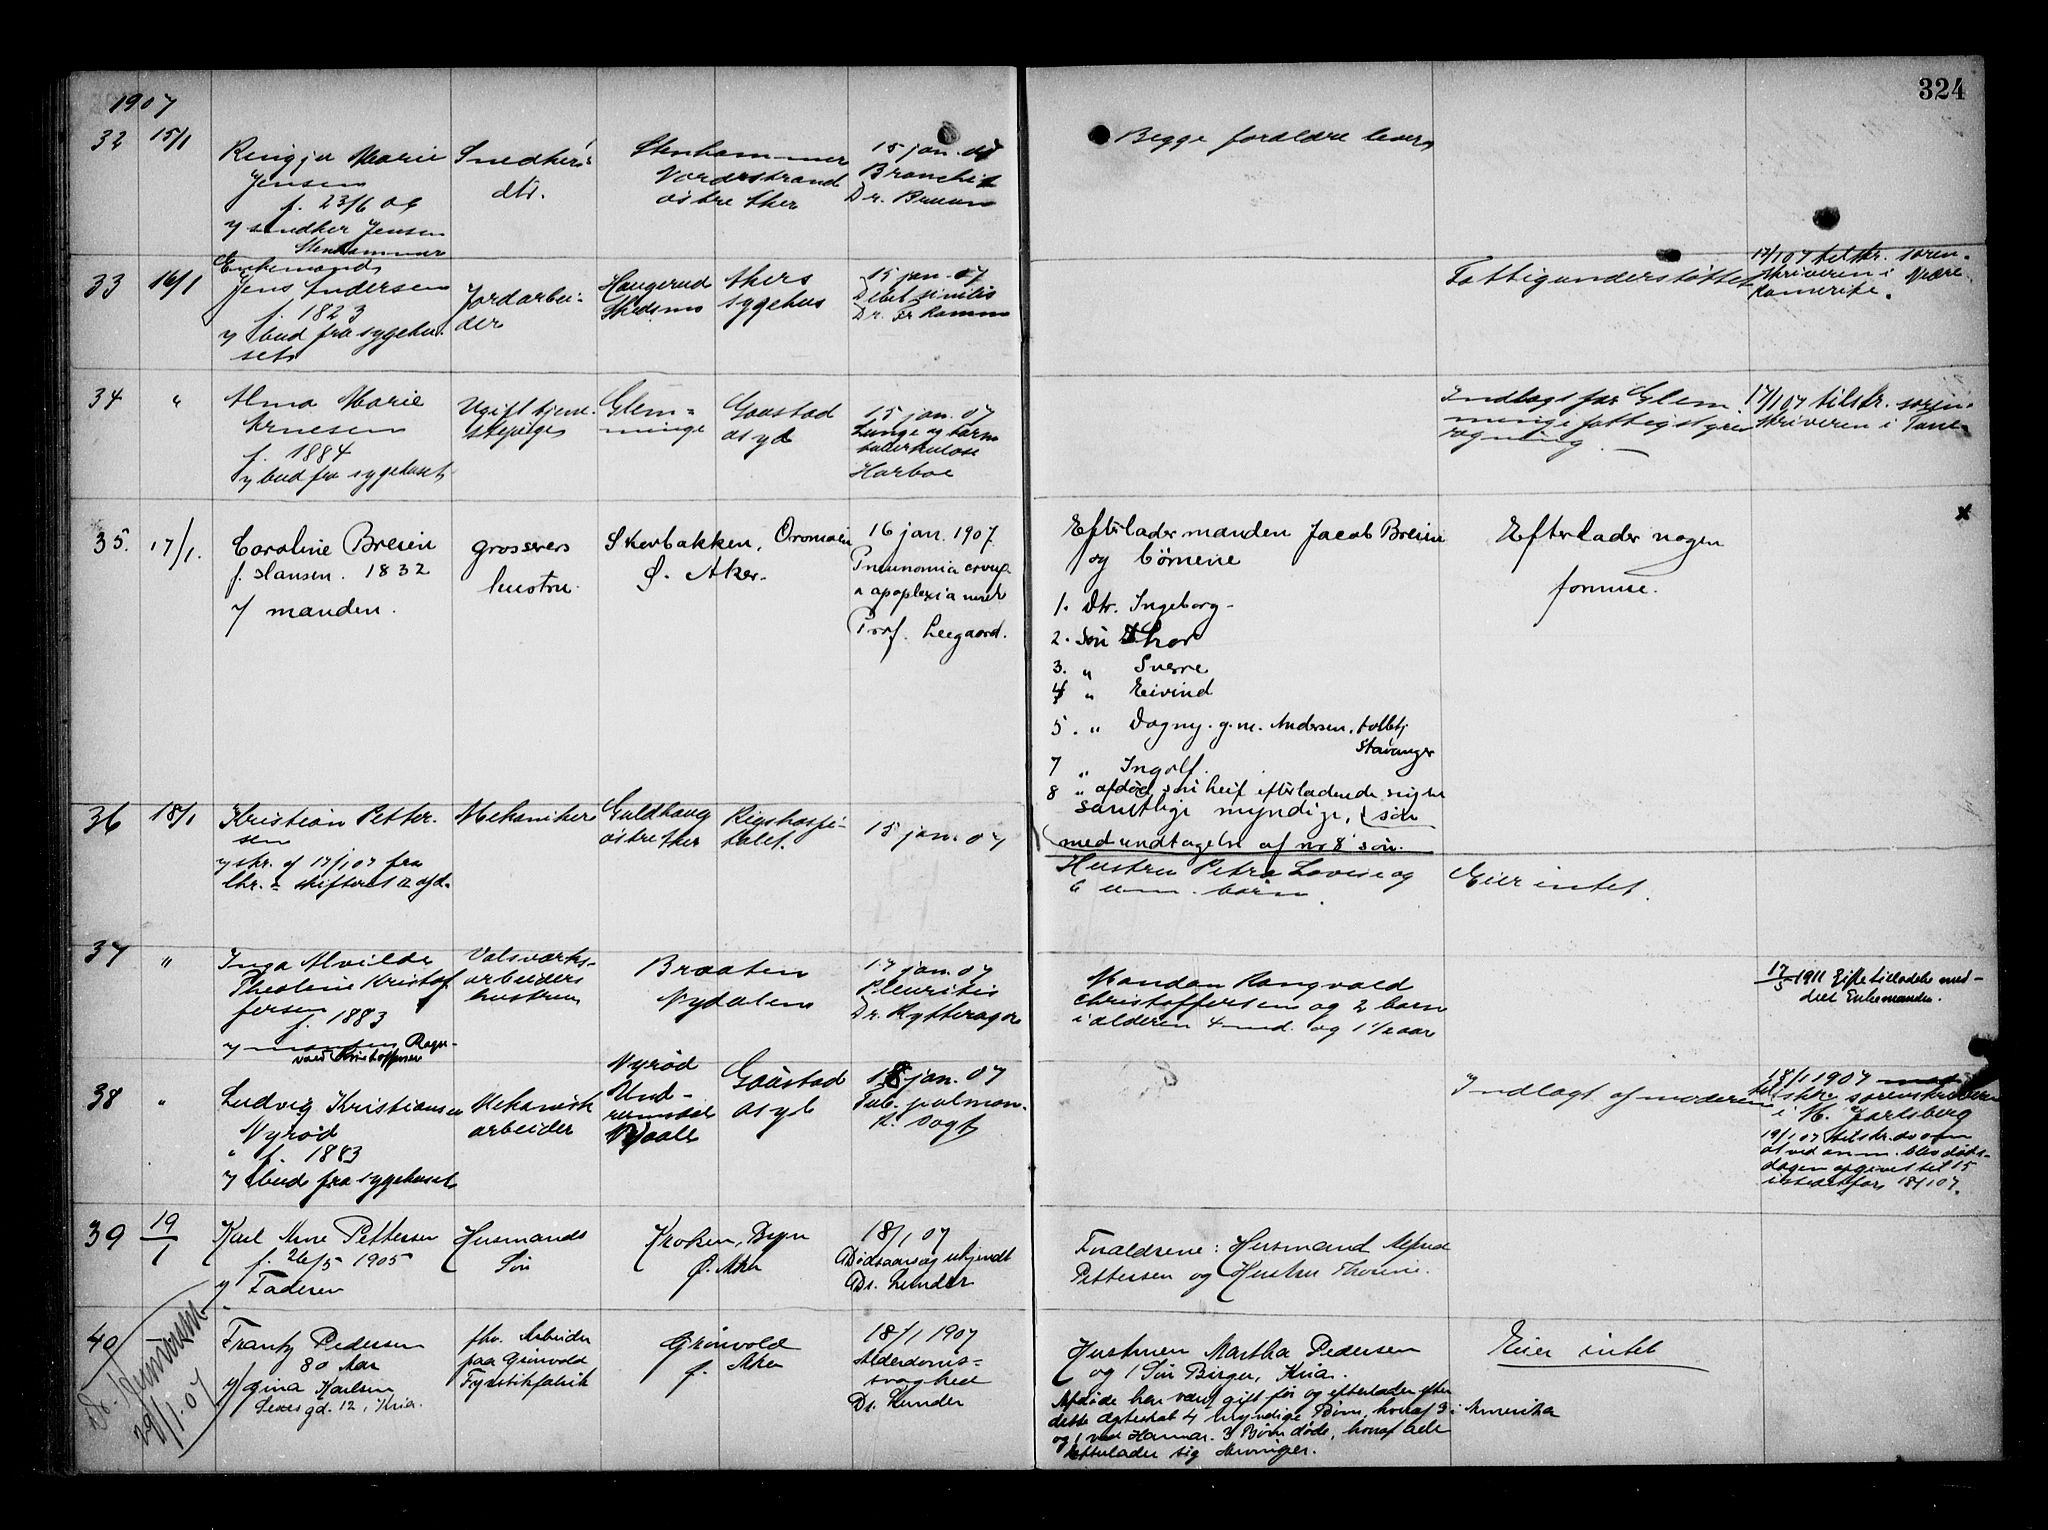 324
1907
32 15/1
Marie
Jensen
f. 23/6 06
v/ snedker Jensen
Stenhammer
Snedkers
dtr.
Stenhammer
Nordstrand
østre Aker
15 jan. 07
Bronchit
Dr.
Begge forældre lever
33 16/1
Enkemand
Jens Andersen
f. 1823
v/ bud fra sygehu-
set
Jordarbei-
der
Haugerud
Skedsmo
Akers
sygehus
15 jan. 07
Debil. senilis
Dr. Fr
Fattigunderstøttet
17/1 07 tilskr. soren-
skriveren i Nedre
Romerike.
34 "
Alma Marie
Arnesen
f. 1884
v/ bud fra sygehuset
Ugift tjene-
stepige
Glem-
minge
Gaustad
asyl
15 jan. 07
Lunge og tarm
tuberkulose
Harboe
Indlagt for Glem-
minge fattigstyres
regning.
17/1 07 tilskr. soren-
skriveren i Tune
35. 17/1.
Caroline Breien
f. Hansen. 1832
v/ manden.
grosserers
hustru.
Skovbakken, Ormøen
Ø. Aker.
16 jan. 1907.
Pneumonia croup.
Prof. Leegaard.
Efterlader manden Jacob Breien
og børnene
1. Dtr. Ingeborg
2. Søn Thor
3. " Sverre
4 " Eivind
5. " Dagny. g. m. Andersen, toldbtj
Stavanger
7 " Ingolf.
8 " afdød søn Leif efterladende sig en
samtlige myndige, søn
med undtagelse af nr 8's søn.
Efterlader nogen
formue.
x
36 18/1
Kristian Petter-
sen
v/ skr. af 17/1 07 fra
Chr. skifteret 2 afd.
Mekaniker
Guldhaug
østre Aker
Rigshospi-
talet.
15 jan. 07
Hustru Petra Lovise og
6 um. børn.
Eier intet.
37 "
Inga Alvilde
Theoline Kristof
fersen
f. 1883
v/ manden Ragn-
vald Kristoffersen
Valsværks-
arbeiders
hustru
Braaten
Nydalen
17 jan. 07
Pleuritis
Dr. Rytterager
Manden Rangvald
Christoffersen og 2 barn
i alderen 4 md. og 1½ aar
17/5 1911 Giftetilladelse med-
delt Enkemanden.
38 "
Ludvig Kristiansen
Nyrød
f. 1883
v/ bud fra sygehuset
Mekanisk
arbeider
Nyrød
Und-
rumsdal
Gaustad
asyl
18 jan. 07
Tub. pulmon.
R. Vogt
Indlagt af moderen
18/1 1907
tilskr. sorenskriveren
i M. Jarlsberg
19/1 07 tilskr. do om
at ved anm. blev døds-
dagen opgivet til 15
istedetfor 18/1 07.
39 19/1
Karl Arne Pettersen
f. 26/5 1905
v/ Faderen
Husmands
Søn
Kroken, Bryn
Ø. Aker
18/1 07
Dødsaarsag ukjendt
Dr. Lunder
Forældrene: Husmand Alfred
Pettersen og Hustru Thorine.
40
29/1. 07
Frantz Pedersen
80 Aar
v/ Gina Karlsen
gd. 12, Kria.
fhv. Arbeider
paa Grønvold
Fyrstikfabrik
Grønvold
Ø. Aker
18/1 1907
Alderdoms-
svaghed
Dr. Lunder
Hustruen Martha Pedersen
og 1 Søn Birger, Kria.
Afdøde har været gift før og efterlader efter
dette ægteskab 4 myndige Børn, hvoraf 3 i Amerika
og 1 ved Hamar. 3 Børn døde, hvoraf
efterlader sig Livsarvinger.
Eier intet